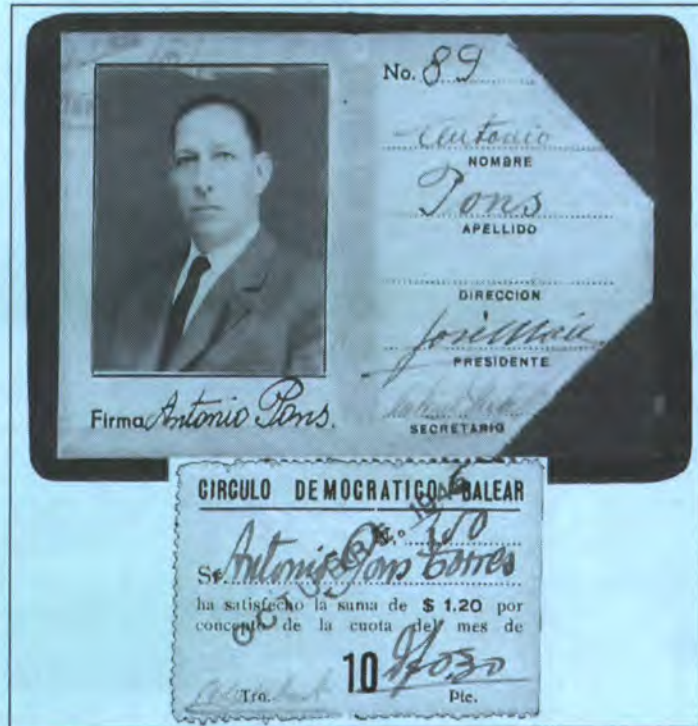 No. 89
Antonio
NOMBRE
Pons
APELLIDO
DIRECCION
José
PRESIDENTE
SECRETARIO
Firma Antonio Pons.
CIRCULO DEMOCRATICO BALEAR
N.º
Sr. Antonio Pons Torres
ha satisfecho la suma de $ 1.20 por
concepto de la cuota del mes de
OCTUBRE
10
Tro. Pte.